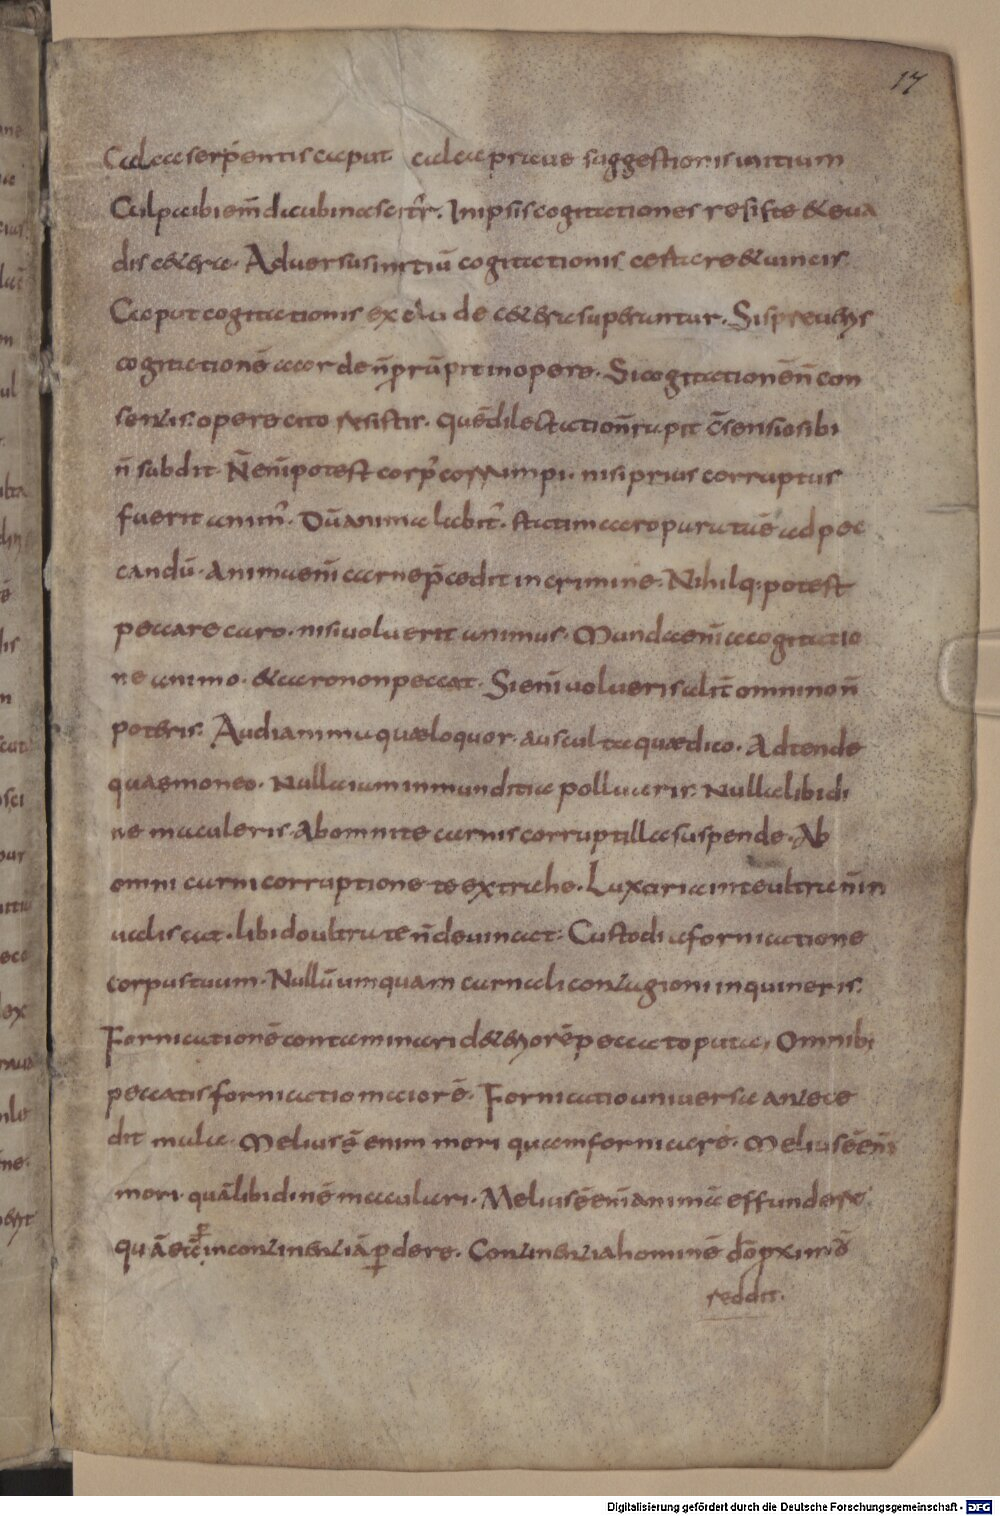 17
Calca serpentis caput calca prauae suggestionis initium
Culpa ibi em̄dicubi nascit᷒r. In ipsis cogitationes resiste & eua
dis c&era. Adversus initiū cogitationis esta cre & uincis.
Caput cogitationis exclude c&era superantur. Si spreueris
cogitationē a corde n̄ prūpit in opere. Si cogitationē n̄ con
sentis. opere cito resistis. quē dilectatio n̄ rapit c̄sensio sibi
n̄ subdit. N̄ enī potest corp᷒ corrumpi. nisi prius corruptus
fuerit anim᷒. Dū anima labit᷒. statim caro parata ē ad pec
candū. Anima enī carne p̄cedit in crimine. Nihilq; potest
peccare caro. nisi uoluerit animus. Munda enī a cogitatio
ne animo. & caro non peccat. Si enī uolueris alit̄ omnino n̄
poteris. Audi anima quae loquor. ausculta quae dico. Adtende
quae moneo. Nulla iam inmunditia polluaris. Nulla libidi
ne maculeris. Ab omni te carnis corruptilla suspende. Ab
omni carni corruptione te extrahe. Luxoria in te ultra n̄ in
ualiscat. libido ultra te n̄ deuincat. Custodi a fornicatione
corpus tuum. Nullū umquam carnali contagioni inquineris.
Fornicationē contaminari det&eriorē peccato puta. Omnib;
peccatis fornicatio maior ē. Fornicatio uniuersa antece
dit mala. Melius ē enim mori quam fornicare. Melius ē enī
mori. quā libidinē maculari. Melius ē enī animā effundere.
quā eā per incontinentiā ꝑdere. Continentia hominē dō ꝓximū
reddit.
Digitalisierung gefördert durch die Deutsche Forschungsgemeinschaft - DFG